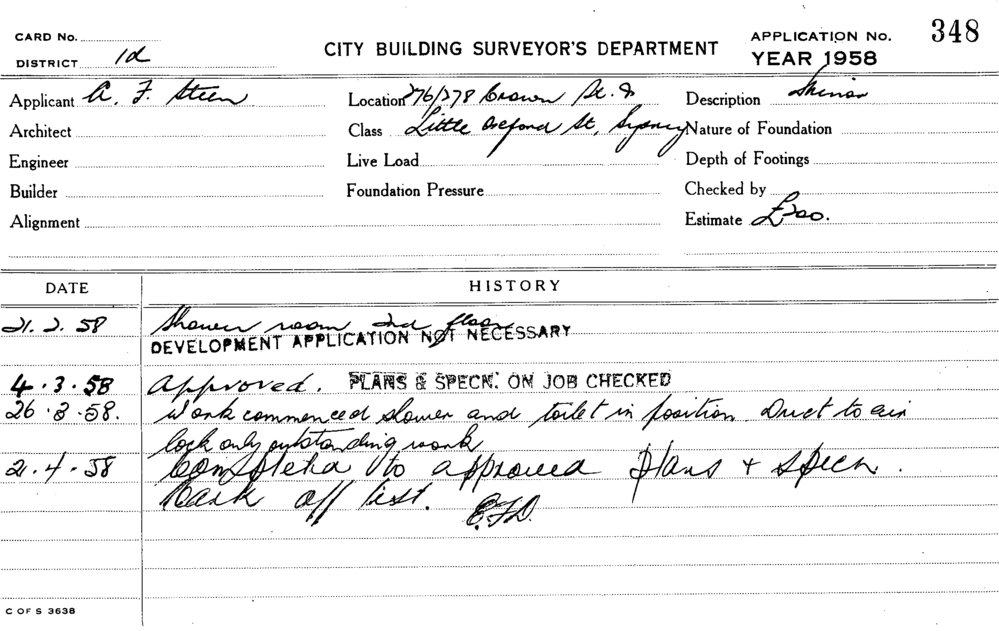 CARD No.
DISTRICT 1d
CITY BUILDING SURVEYOR'S DEPARTMENT
APPLICATION No. 348
YEAR 1958
Applicant A. F. Steen
Location 276/278 Crown St. &
Description
Architect
Class Little Oxford St, Sydney
Nature of Foundation
Engineer
Live Load
Depth of Footings
Builder
Foundation Pressure
Checked by
Alignment
Estimate £200.
DATE HISTORY
21. 2. 58 Shower room 2nd floor
DEVELOPMENT APPLICATION NOT NECESSARY
4. 3. 58 Approved. PLANS & SPECN. ON JOB CHECKED
26. 3. 58. Work commenced shower and toilet in position Duct to air
lock only outstanding work
21. 4. 58 Completed to approved plans & specn.
Mark off list. E.F.D.
C OF S 3638